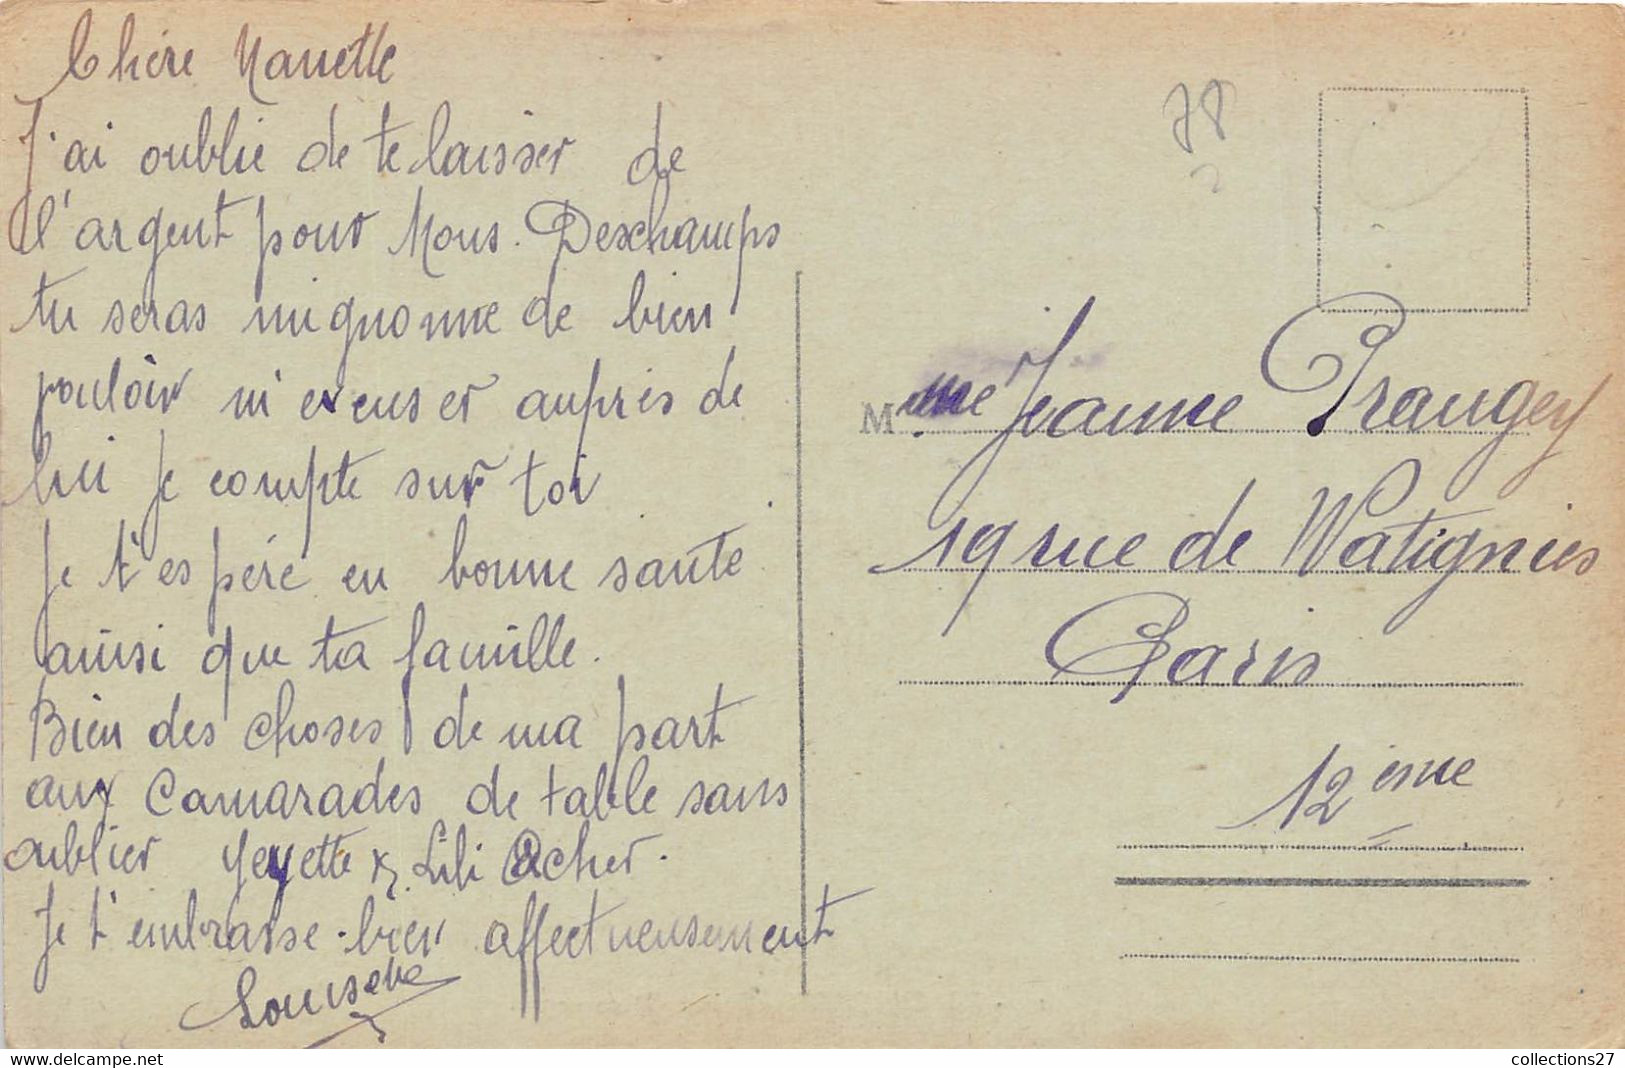 Chère Nanette
J'ai oublié de te laisser de
l'argent pour Mons. Deschamps
tu seras mignonne de bien
vouloir m'excuser auprès de
lui je compte sur toi
Je t'espère en bonne santé
ainsi que ta famille.
Bien des choses de ma part
aux Camarades de table sans
oublier Yeyette & Lili Acher.
Je t'embrasse bien affectueusement
78
Mme Jeanne Prangey
19 rue de Watignies
Paris
12 ème
collections27